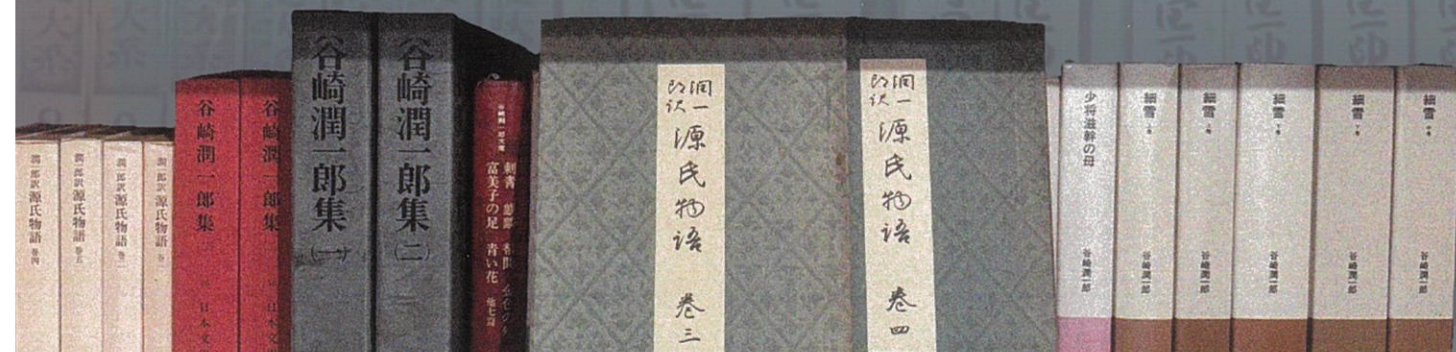 潤一郎訳 源氏物語 巻四
潤一郎訳 源氏物語 巻五
潤一郎訳 源氏物語 巻二
潤一郎訳 源氏物語 巻一
谷崎潤一郎集 日本文
谷崎潤一郎集 日本文
谷崎潤一郎集(一)
谷崎潤一郎集(二)
刺青
富美子の足 青い花 他七篇
潤一郎訳 源氏物語 巻三
潤一郎訳 源氏物語 巻四
少将滋幹の母 谷崎潤一郎
細雪 谷崎潤一郎
細雪 谷崎潤一郎
細雪 谷崎潤一郎
細雪 谷崎潤一郎
細雪 谷崎潤一郎